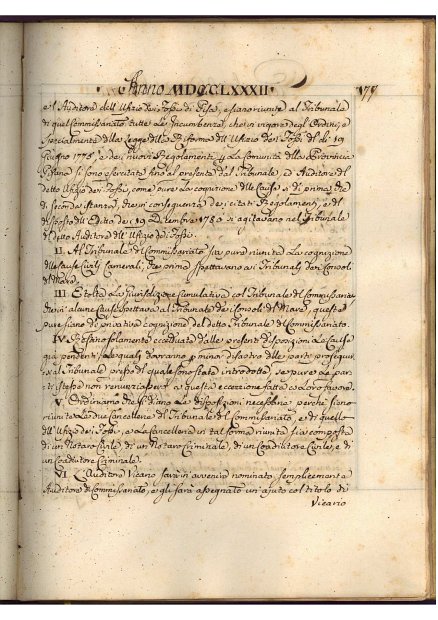 Anno MDCCLXXXII.
177
e l'Auditore dell'Ufizio dei Fossi di Pisa, e siano riunite al Tribunale
di quel Commissariato tutte le Incumbenze, che in vigore degli Ordini, e
specialmente della Legge della Riforma dell'Ufizio dei Fossi del dì 19
Giugno 1775, e dei nuovi Regolamenti p. le Comunità della Provincia
Pisana si sono esercitate fino al presente dal Tribunale, ed Auditore del
detto Ufizio dei Fossi, come pure la cognizione delle Cause sì di prima, che
di seconda istanza, che in conseguenza dei citati Regolamenti, e del
disposto dell'Editto dei 19 Settembre 1780 si agitavano nel Tribunale
del detto Auditore dell'Ufizio dei Fossi.
II. Al Tribunale del Commissariato sia pure riunita la cognizione
delle Cause Civili Camerali, che prima spettavano ai Tribunali dei Consoli
di Mare.
III. E tolta la Giurisdizione cumulativa col Tribunale del Commissaria-
to in alcune Cause spettava al Tribunale dei Consoli del Mare, queste
pure siano di privativa cognizione del detto Tribunale di Commissariato.
IV. Restano solamente eccettuate dalle presenti disposizioni le Cause
già pendenti, le quali dovranno p. minor disastro delle parti prosegui-
rsi al Tribunale presso il quale sono state introdotte, se pure le par-
ti istesse non renunziassero a questa eccezione fatta a loro favore.
V. Ordiniamo che si diano le disposizioni necessarie perchè siano
riunite le due Cancellerie del Tribunale del Commissariato, e di quello
dell'Ufizio dei Fossi, e la Cancelleria in tal forma riunita sia composta
di un Notaro Civile, di un Notaro Criminale, di un Coadiutore Civile, e di
un Coadiutore Criminale.
VI. L'Auditore Vicario sarà in avvenire nominato semplicemente
Auditore di Commissariato, e gli sarà assegnato un ajuto col titolo di
Vicario